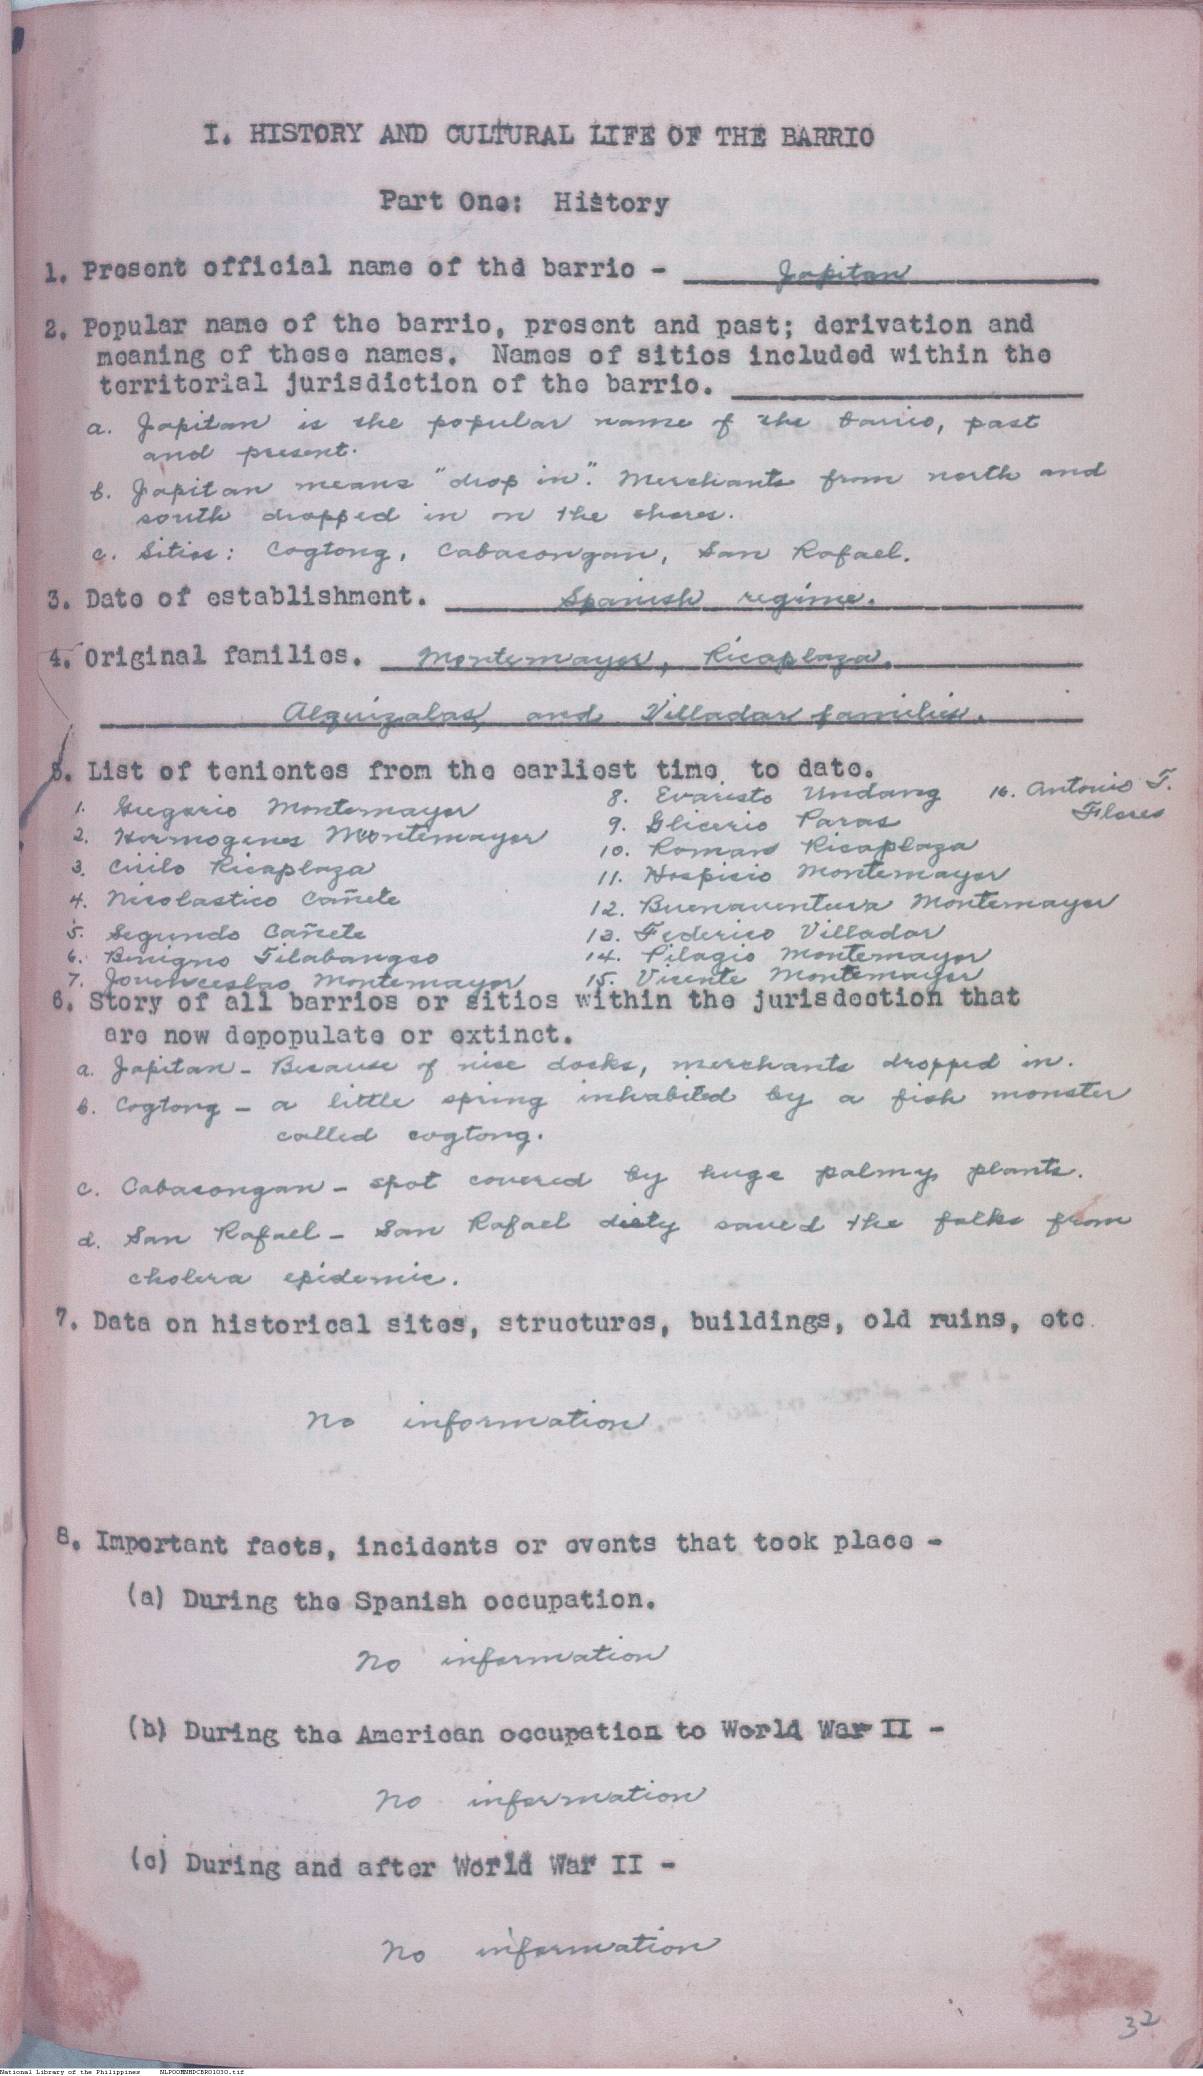 I. HISTORY AND CULTURAL LIFE OF THE BARRIO
Part One: History
1. Present official name of thd barrio - Japitan
2. Popular name of the barrio, present and past; derivation and
meaning of these names. Names of sitios included within the
territorial jurisdiction of the barrio.
a. Japitan is the popular name of the barrio, past
and present.
b. Japitan means "drop in". Merchants from north and
south dropped in on the shores.
c. Sitios: Cogtong, Cabasongan, San Rafael.
3. Date of establishment. Spanish regime.
4. Original families. Montemayor, Ricaplaza,
Alquizalas, and Villadar families.
5. List of tenientes from the earliest time to date.
1. Gregorio Montemayor
2. Hermogenes Montemayor
3. Cirilo Ricaplaza
4. Nicolastico Cañete
5. Segundo Cañete
6. Benigno Tilabangso
7. Jovenceslao Montemayor
8. Evaristo Undang
9. Glicerio Paras
10. Roman Ricaplaza
11. Hospisio Montemayor
12. Buenaventura Montemayor
13. Federico Villadar
14. Pilagio Montemayor
15. Vicente Montemayor
16. Antonio T.
Flores
6. Story of all barrios or sitios within the jurisdection that
are now depopulate or extinct.
a. Japitan - Because of nice docks, merchants dropped in.
b. Cogtong - a little spring inhabited by a fish monster
called cogtong.
c. Cabasongan - spot covered by huge palmy plants.
d. San Rafael - San Rafael diety saved the folks from
cholera epidemic.
7. Data on historical sites, structures, buildings, old ruins, etc.
No information
8. Important facts, incidents or events that took place -
(a) During the Spanish occupation.
No information
(b) During the American occupation to World War II -
No information
(c) During and after World War II -
No information
32
National Library of the Philippines NLPOOMNHDCBR01030.tif